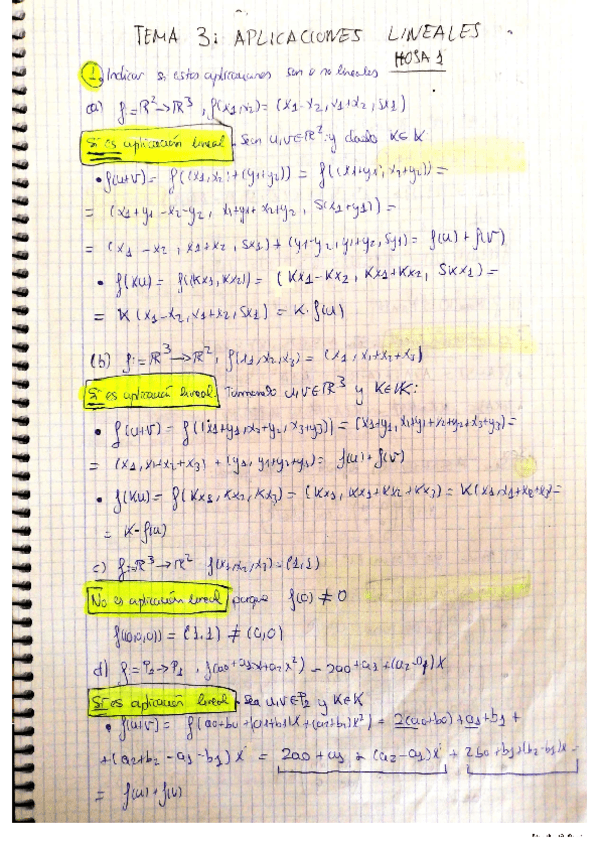 TEMA 3: APLICACIONES LINEALES
HOJA 1
1. Indicar si estas aplicaciones son o no lineales
a) f:=ℝ²→ℝ³, f(x1,x2)=(x1-x2, x1+x2, 5x1)
Si es aplicación lineal. Sean u,v∈ℝ² y dado K∈𝕂:
• f(u+v)= f((x1,x2)+(y1,y2)) = f((x1+y1, x2+y2))=
= (x1+y1-x2-y2, x1+y1+x2+y2, 5(x1+y1))=
= (x1-x2, x1+x2, 5x1)+(y1-y2, y1+y2, 5y1)= f(u)+f(v)
• f(Ku)= f((Kx1, Kx2))= (Kx1-Kx2, Kx1+Kx2, 5Kx1)=
= K(x1-x2, x1+x2, 5x1) = K·f(u)
(b) f:=ℝ³→ℝ², f(x1,x2,x3) = (x1, x1+x2+x3)
Si es aplicación lineal. Tomando u,v∈ℝ³ y K∈𝕂:
• f(u+v)= f((x1+y1, x2+y2, x3+y3))= (x1+y1, x1+y1+x2+y2+x3+y3)=
= (x1, x1+x2+x3) + (y1, y1+y2+y3)= f(u)+f(v)
• f(Ku)= f(Kx1, Kx2, Kx3)= (Kx1, Kx1+Kx2+Kx3)= K(x1, x1+x2+x3)=
= K·f(u)
c) f:=ℝ³→ℝ² f(x1,x2,x3)=(1,1)
No es aplicación lineal porque f(0)≠0
f((0,0,0))= (1,1) ≠ (0,0)
d) f:=P2→P1, f(a0+a1x+a2x²)= 2a0+a1+(a2-a1)x
Si es aplicación lineal. Sea u,v∈P2 y K∈K
• f(u+v)= f(a0+b0+(a1+b1)x+(a2+b2)x²)= 2(a0+b0)+a1+b1+
+(a2+b2-a1-b1)x = 2a0+a1+(a2-a1)x + 2b0+b1+(b2-b1)x=
= f(u)+f(v)